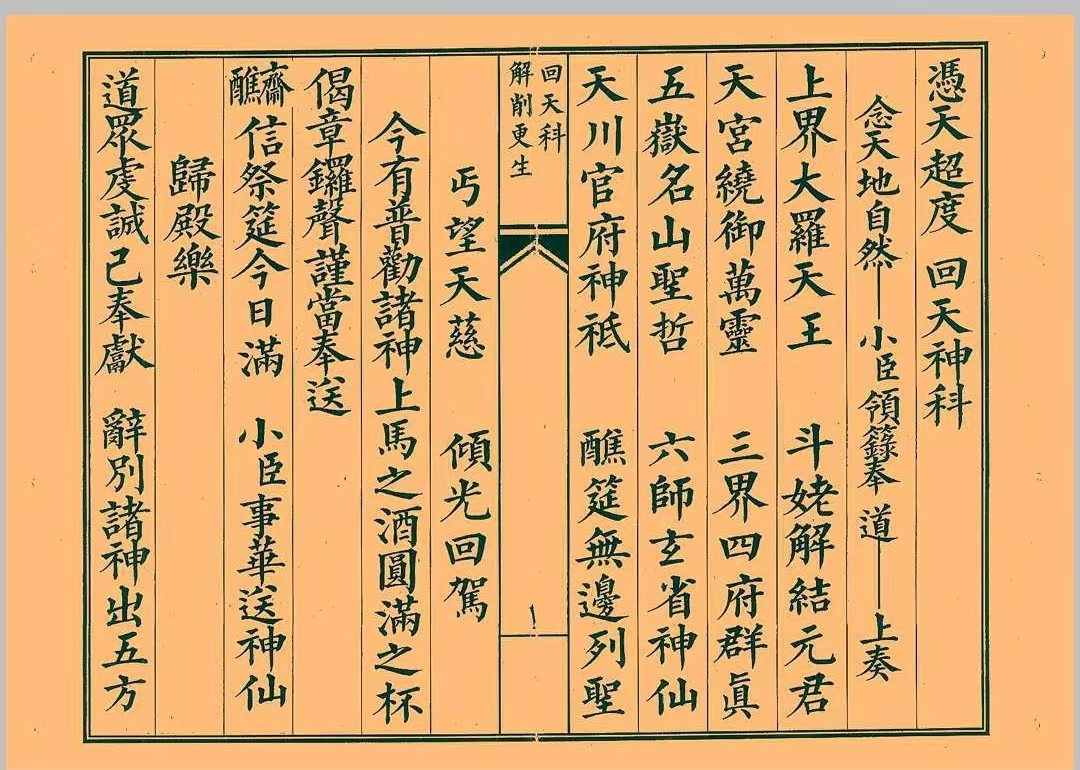 憑天超度 回天神科
念天地自然——小臣領籙奉 道——上奏
上界大羅天王 斗姥解結元君
天宮繞御萬靈 三界四府群眞
五嶽名山聖哲 六師玄省神仙
天川官府神祇 醮筵無邊列聖
回天科
解削更生
丐望天慈 傾光回駕
今有普勸諸神上馬之酒圓滿之杯
偈章鑼聲謹當奉送
齋醮信祭筵今日滿 小臣事華送神仙
歸殿樂
道眾虔誠已奉獻 辭別諸神出五方